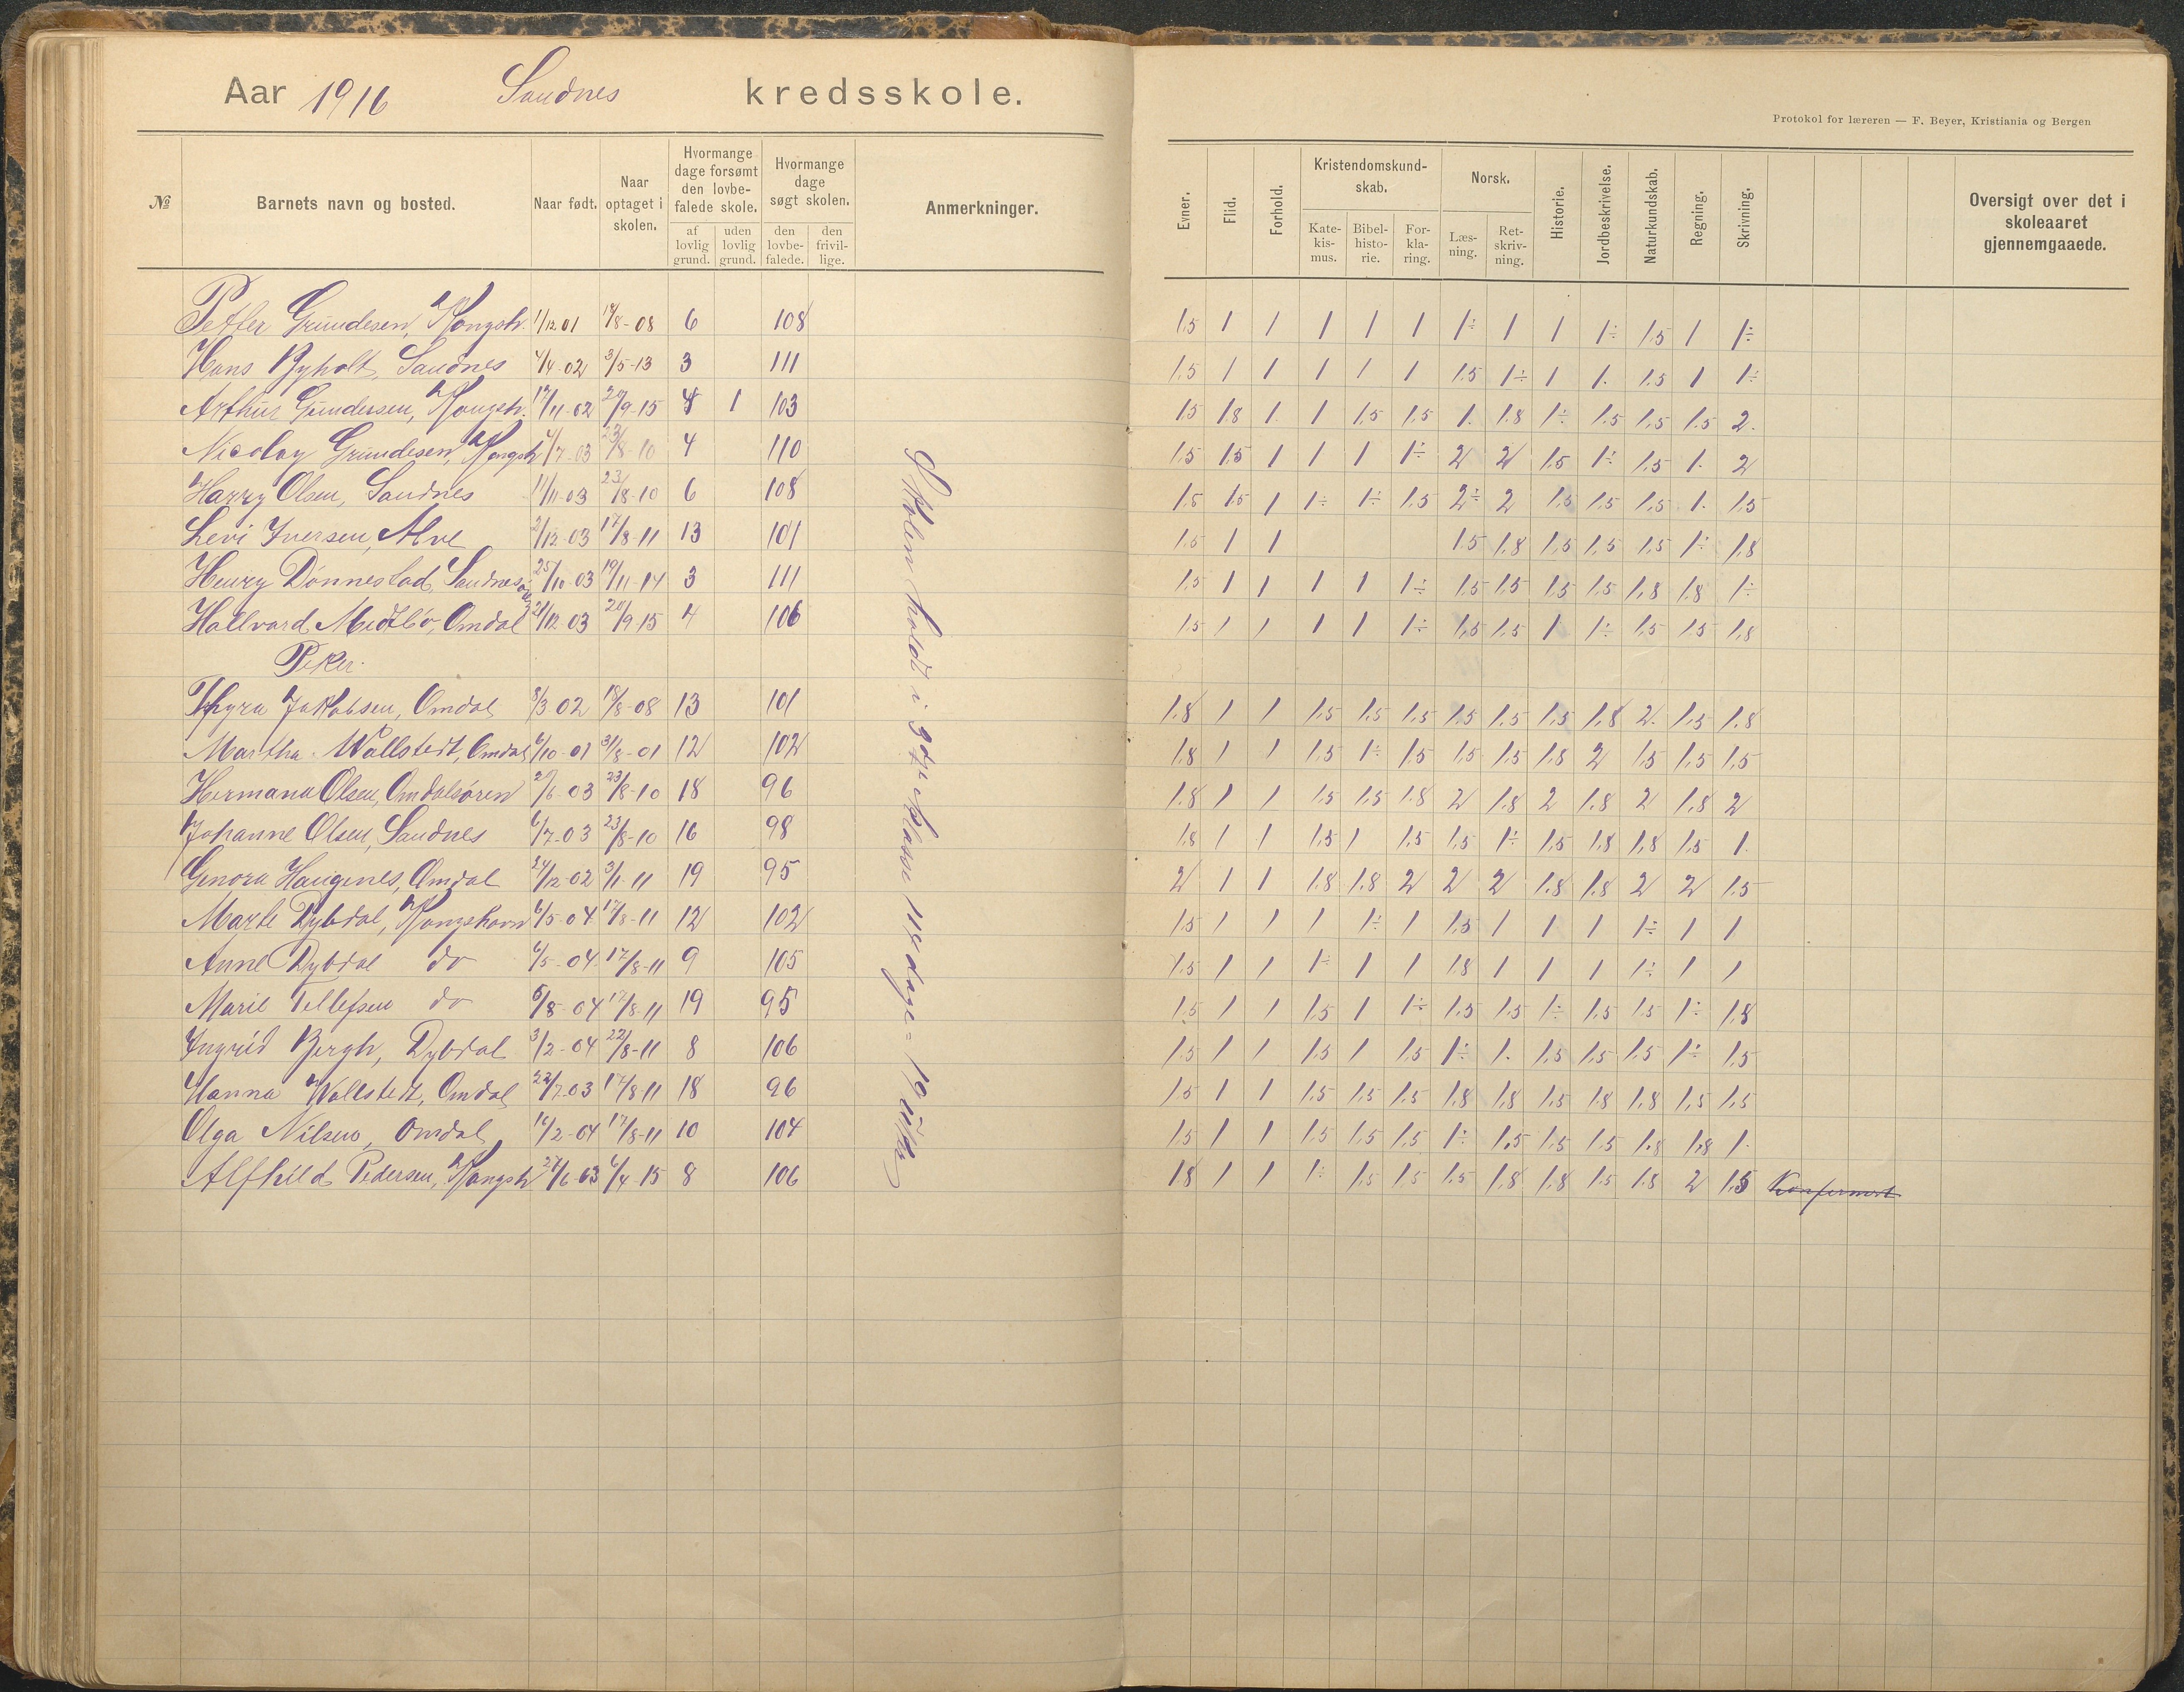 Aar 1916 Sandnes kredsskole.
Protokol for læreren — F. Beyer, Kristiania og Bergen
№ Barnets navn og bosted. Naar født. Naar optaget i skolen. Hvormange dage forsømt den lovbefalede skole. af lovlig grund. uden lovlig grund. Hvormange dage søgt skolen. den lovbefalede. den frivillige. Anmerkninger. Evner. Flid. Forhold. Kristendomskundskab. Katekismus. Bibelhistorie. Forklaring. Norsk. Læsning. Retskrivning. Historie. Jordbeskrivelse. Naturkundskab. Regning. Skrivning. Oversigt over det i skoleaaret gjennemgaaede.
Petter Gundesen, Kongsh. 1/12 01 18/8-08 6 108 1.5 1 1 1 1 1 1÷ 1 1 1÷ 1.5 1 1÷
Hans Byholt, Sandnes 4/4-02 3/5-13 3 111 1.5 1 1 1 1 1 1.5 1÷ 1 1. 1.5 1 1÷
Arthur Gundersen, Kongsh. 12/11-02 20/9-15 4 1 103 1.5 1.8 1. 1 1.5 1.5 1. 1.8 1÷ 1.5 1.5 1.5 2.
Nicolay Gundesen, Kongsh 4/7-03 23/8-10 4 110 1.5 1.5 1 1 1 1÷ 2 2 1.5 1÷ 1.5 1. 2
Harry Olsen, Sandnes 11/11-03 23/8-10 6 108 1.5 1.5 1 1÷ 1÷ 1.5 2÷ 2 1.5 1.5 1.5 1. 1.5
Levi Iversen, Alve 2/12-03 17/8-11 13 101 1.5 1 1 1.5 1.8 1.5 1.5 1.5 1÷ 1.8
Henry Dønnestad, Sandnes 25/10-03 19/11-14 3 111 1.5 1 1 1 1 1÷ 1.5 1.5 1.5 1.5 1.8 1.8 1÷
Hallvard Midtbø, Omdal 21/12 03 20/9-15 4 106 1.5 1 1 1 1 1÷ 1.5 1.5 1 1÷ 1.5 1.5 1.8
Piker.
Thyra Jakobsen, Omdal 8/3 02 18/8-08 13 101 1.8 1 1 1.5 1.5 1.5 1.5 1.5 1.5 1.8 2. 1.5 1.8
Martha Wallstedt, Omdal 6/10-01 31/8-01 12 102 1.8 1 1 1.5 1÷ 1.5 1.5 1.5 1.8 2 1.5 1.5 1.5
Hermana Olsen, Omdalsøren 29/6-03 23/8-10 18 96 1.8 1 1 1.5 1.5 1.8 2 1.8 2 1.8 2 1.8 2
Johanne Olsen, Sandnes 6/7-03 23/8-10 16 98 1.8 1 1 1.5 1 1.5 1.5 1÷ 1.5 1.8 1.8 1.5 1.
Genora Haugenes, Omdal 24/12-02 3/1-11 19 95 2 1 1 1.8 1.8 2 2 2 1.8 1.8 2 2 1.5
Marte Dybdal, Kongshavn 6/5-04 17/8-11 12 102 1.5 1 1 1 1÷ 1 1.5 1 1 1 1÷ 1 1
Anne Dybdal do 6/5-04 17/8-11 9 105 1.5 1 1 1÷ 1 1 1.8 1 1 1 1÷ 1 1
Marie Tellefsen do 5/8-04 17/8-11 19 95 1.5 1 1 1.5 1 1÷ 1.5 1.5 1÷ 1.5 1.5 1÷ 1.8
Ingrid Bergh, Dybdal 3/2-04 22/8-11 8 106 1.5 1 1 1.5 1 1.5 1÷ 1. 1.5 1.5 1.5 1÷ 1.5
Hanna Wallstedt, Omdal 22/7-03 17/8 11 18 96 1.5 1 1 1.5 1.5 1.5 1.8 1.8 1.5 1.8 1.8 1.5 1.5
Olga Nilsen, Omdal 16/2-04 17/8-11 10 104 1.5 1 1 1.5 1.5 1.5 1÷ 1.5 1.5 1.5 1.8 1.8 1.
Alfhild Pedersen, Kongsh 27/6-03 6/4-15 8 106 1.8 1 1 1÷ 1.5 1.5 1.5 1.8 1.8 1.5 1.8 2 1.5 Konfirmert
Skolen holdt i 3dje klasse 114 dage = 19 uker